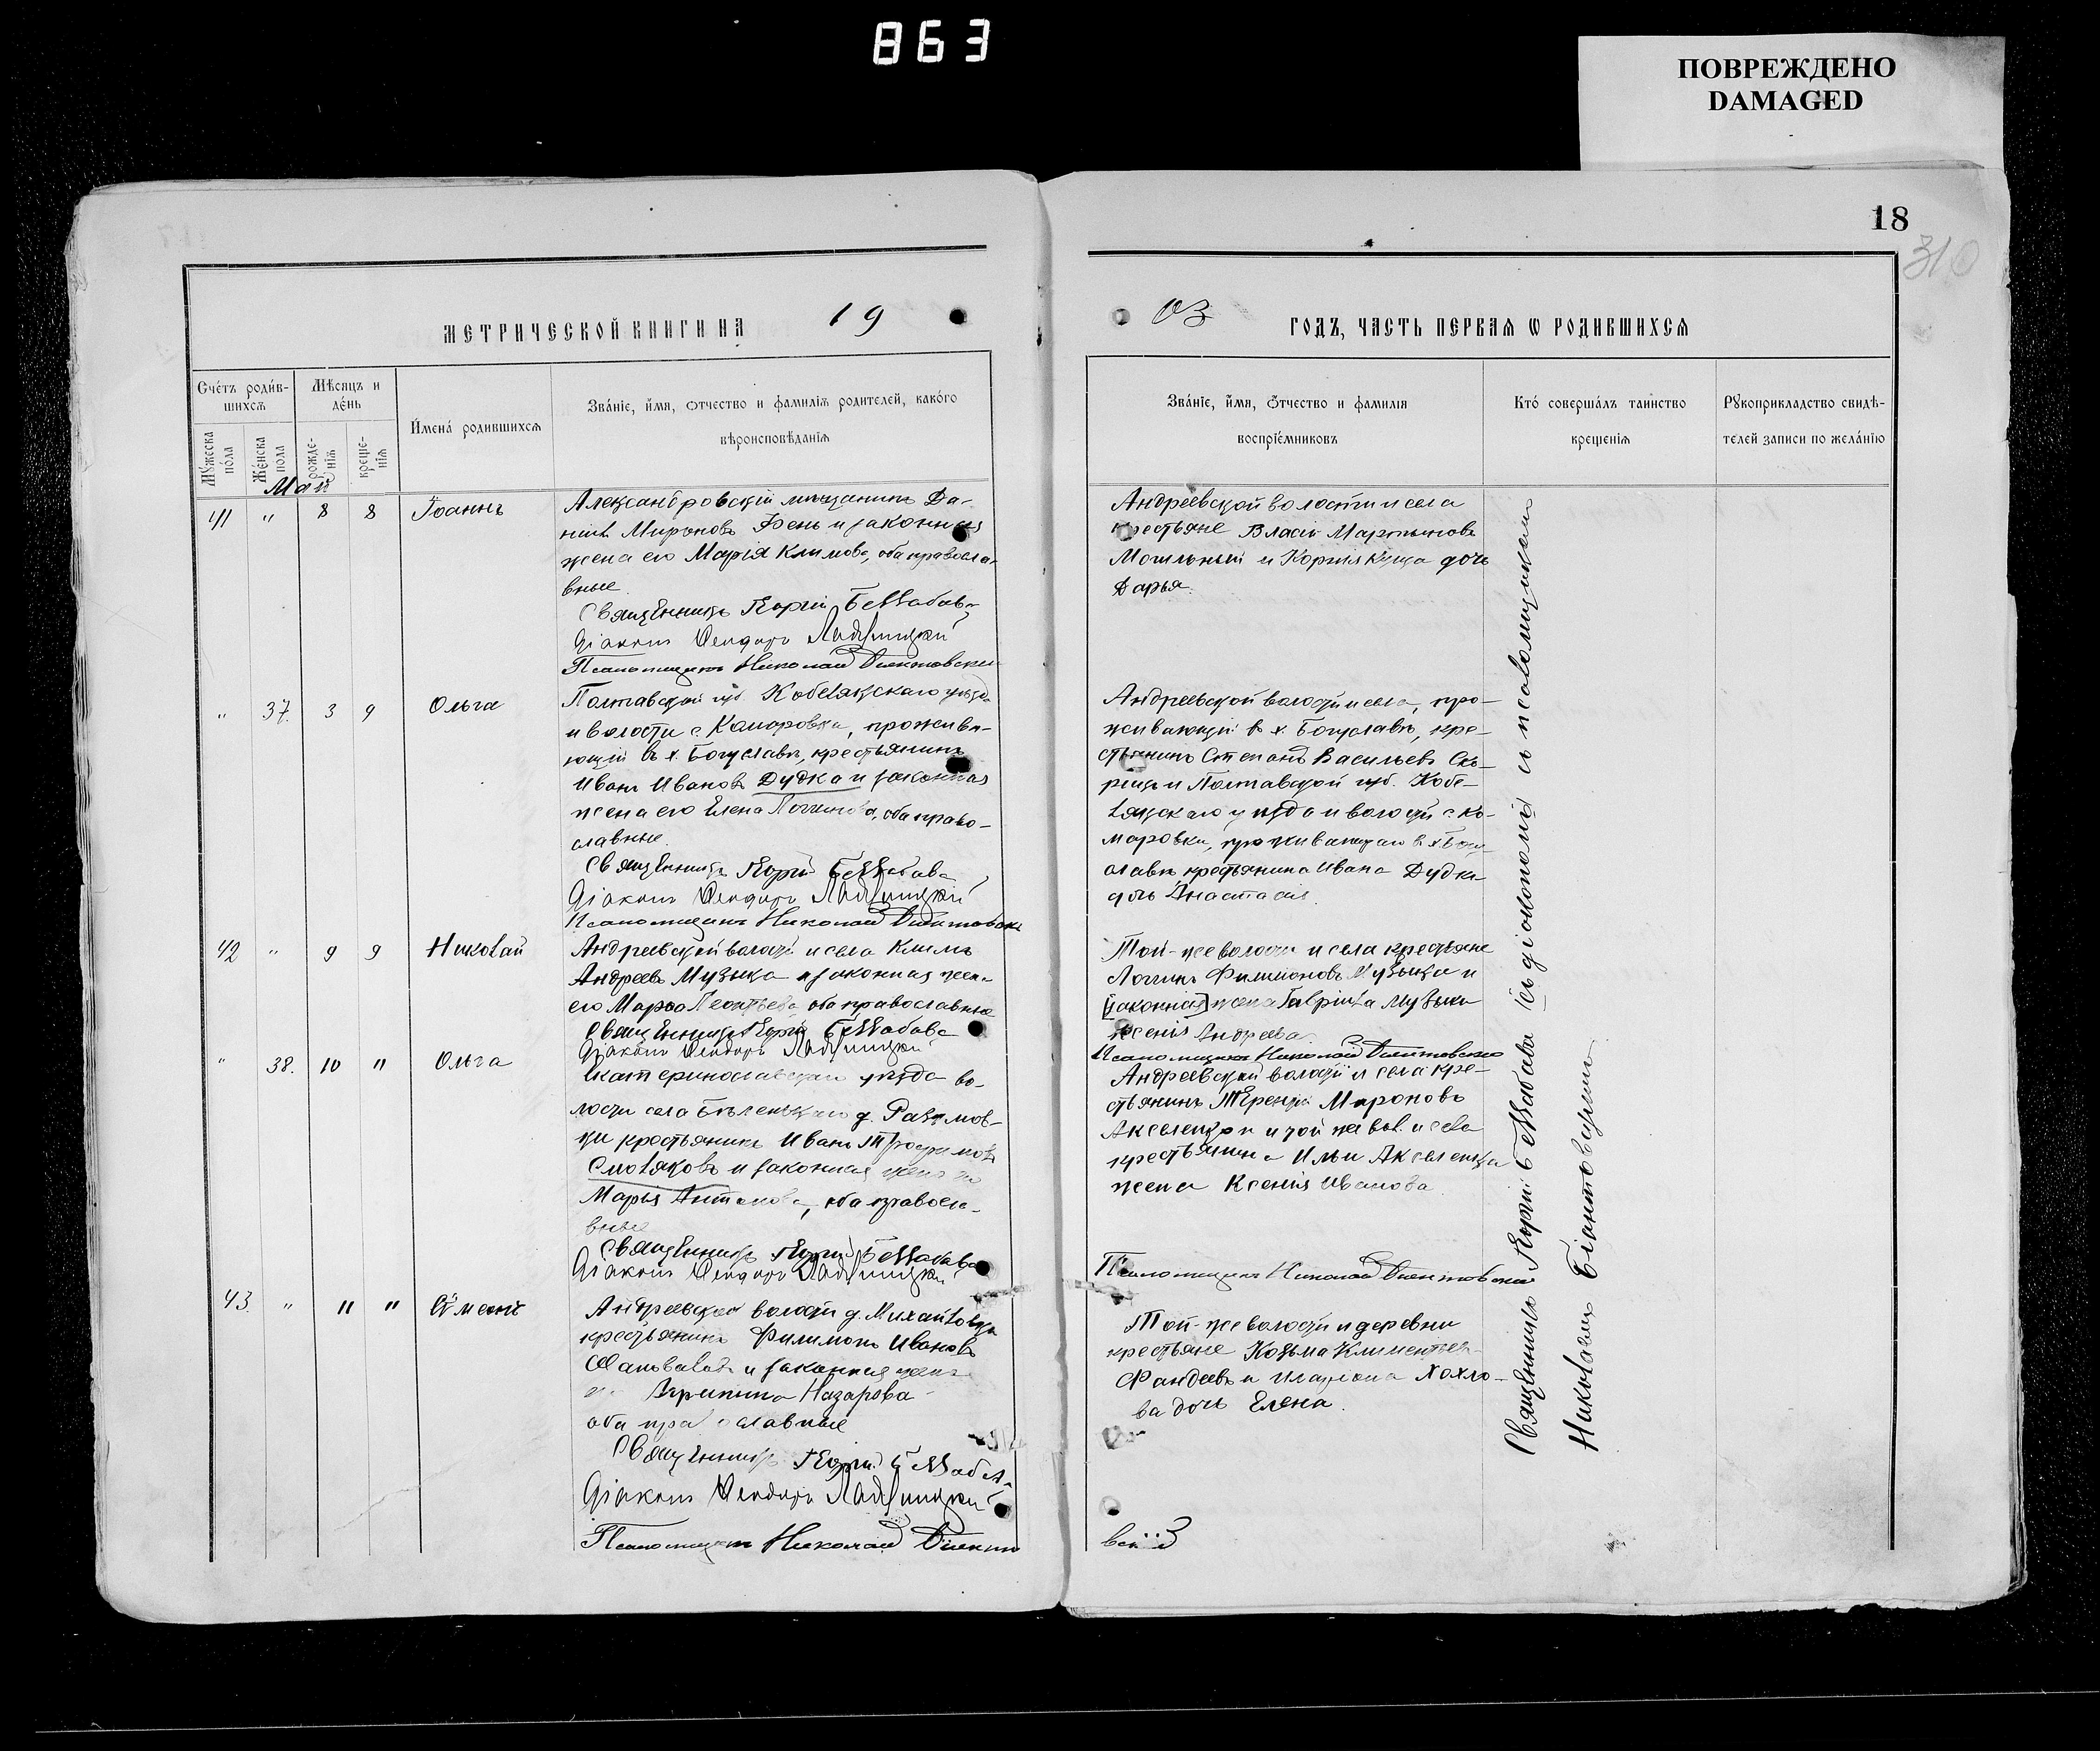 863
ПОВРЕЖДЕНО
DAMAGED
18
310
МЕТРИЧЕСКОЙ КНИГИ НА 19
03 ГОДЪ, ЧАСТЬ ПЕРВАЯ Ѡ РОДИВШИХСЯ
Счетъ родив-
шихся
Мѣсяцъ и
день
Мужеска
пола
Женска
пола
рожде-
нія
креще-
нія
Имена родившихся
Званіе, имя, отчество и фамилія родителей, какого
вѣроисповѣданія
Званіе, имя, отчество и фамилія
воспріемниковъ
Кто совершалъ таинство
крещенія
Рукоприкладство свидѣ-
телей записи по желанію
Май
41 " 8 8 Іоаннъ
Александровскій мѣщанинъ Да-
ніилъ Мироновъ Фень и законная
жена его Марія Климова, оба правосла-
вные
Священникъ Георгій Беззабава
Діаконъ Ѳеодоръ
Псаломщикъ Николай Біянтовскій
Андреевской волости и села
крестьяне Власій Мартыновъ
Могильный и Корнія Куща дочь
Дарья.
" 37. 3 9 Ольга
Полтавской губ. Кобелякскаго уѣзда
и волости с. Комаровки, прожива-
ющій въ х. Богуславѣ, крестьянинъ
Иванъ Ивановъ Дудка и законная
жена его Елена Логгинова, оба право-
славные.
Священникъ Георгій Беззабава
Діаконъ Ѳеодоръ
Псаломщикъ Николай Біянтовскій
Андреевской волости и села, про-
живающій въ х. Богуславѣ, кре-
стьянинъ Степанъ Васильевъ Ско-
рикъ и Полтавской губ. Кобе-
лякскаго уѣзда и волости с. Ко-
маровки, проживающаго въ х. Богу-
славѣ крестьянина Ивана Дудки
дочь Анастасія.
42 " 9 9 Николай
Андреевской волости и села Климъ
Андреевъ Музыка и законная жена
его Марѳа Леонтьева, оба православные
Священникъ Георгій Беззабава
Діаконъ Ѳеодоръ
Той-же волости и села крестьяне
Логгинъ Филимоновъ Музыка и
[законная] жена Гавріила Музыки
Ксенія Андреева.
Псаломщикъ Николай Біянтовскій
" 38. 10 " Ольга
Екатеринославскаго уѣзда во-
лости села Бѣленькаго д. Разумов-
ки крестьянинъ Иванъ Трофимовъ
Смоляковъ и законная жена его
Марья Антонова, оба правосла-
вные
Священникъ Георгій Беззабава
Діаконъ Ѳеодоръ
Андреевской волости и села кре-
стьянинъ Терентій Мироновъ
и той же вол. и села
крестьянина Ильи
жена Ксенія Иванова.
Псаломщикъ Николай Біянтовскій
43. " " " Сѵмеонъ
Андреевской волости д. Михайловки
крестьянинъ Филимонъ Ивановъ
Шаповаловъ и законная жена
его Агрипина Назарова
оба православные
Священникъ Георгій Беззабава
Діаконъ Ѳеодоръ
Псаломщикъ Николай Біянто
Той-же волости и деревни
крестьяне Козьма Климентьев
Фандеевъ и Хохло-
ва дочь Елена.
вскій
Священникъ Георгій Беззабава съ діакономъ и псаломщикомъ
Николаемъ Біянтовскимъ